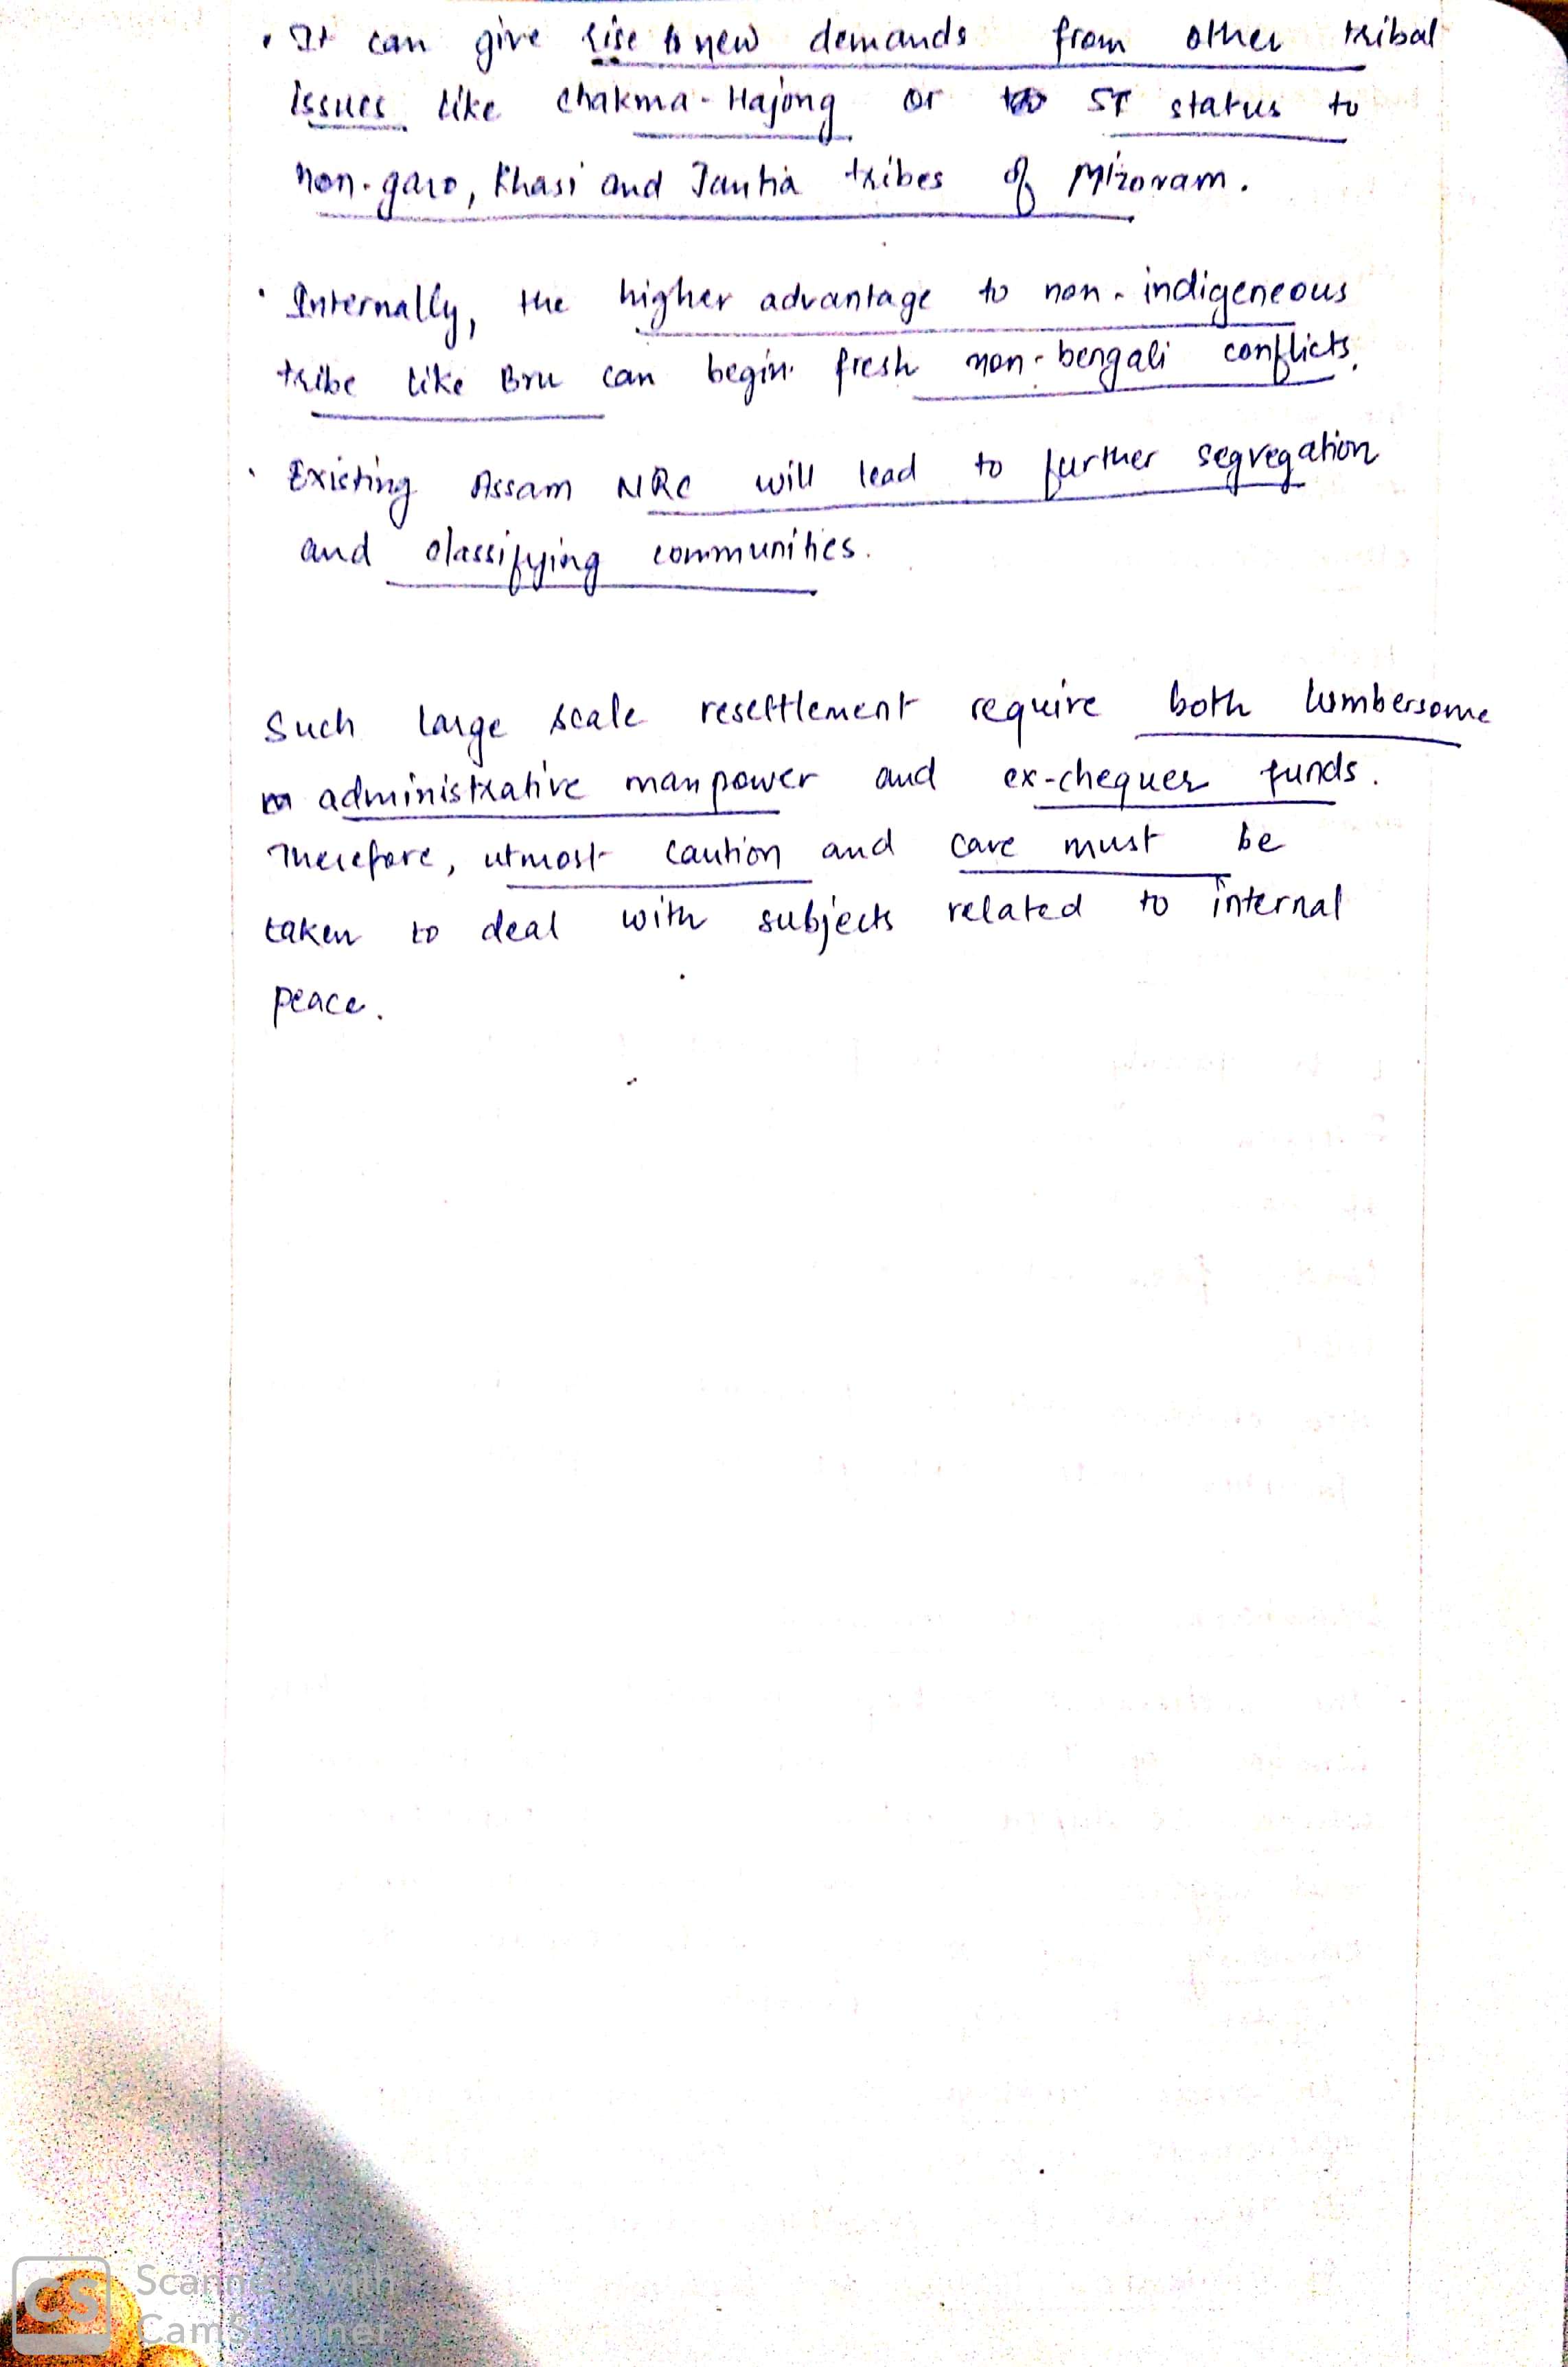 • It can give rise to new demands from other tribal
issues like Chakma-Hajong or ST status to
non-garo, Khasi and Jantia tribes of Mizoram.
• Internally, the higher advantage to non-indigeneous
tribe like Bru can begin fresh non-bengali conflicts.
• Existing Assam NRC will lead to further segregation
and classifying communities.
Such large scale resettlement require both lumbersome
administrative manpower and ex-chequer funds.
Therefore, utmost caution and care must be
taken to deal with subjects related to internal
peace.
CS
Scanned with
CamScanner